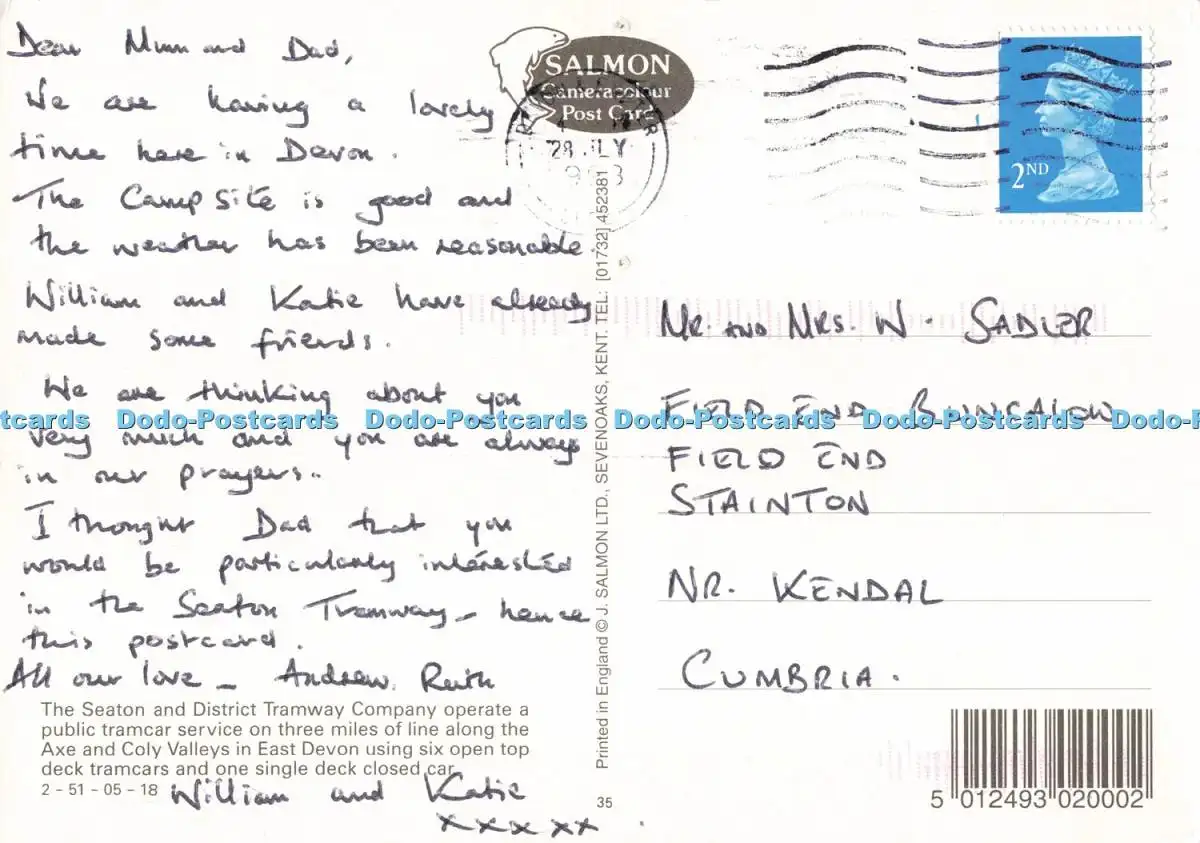 Dear Mum and Dad,
We are having a lovely
time here in Devon.
The Camp Site is good and
the weather has been reasonable.
William and Katie have already
made some friends.
We are thinking about you
very much and you are always
in our prayers.
I thought Dad that you
would be particularly interested
in the Seaton Tramway – hence
this postcard.
All our love – Andrew, Ruth
William and Katie
xxxxxx
The Seaton and District Tramway Company operate a
public tramcar service on three miles of line along the
Axe and Coly Valleys in East Devon using six open top
deck tramcars and one single deck closed car.
2 - 51 - 05 - 18
SALMON
Cameracolour
Post Card
28 JLY
Printed in England © J. SALMON LTD., SEVENOAKS, KENT. TEL: [01732] 452381
35
2ND
MR. AND MRS. W. SADLER
FIELD END BUNGALOW
FIELD END
STAINTON
NR. KENDAL
CUMBRIA.
5 012493 020002
Dodo-Postcards Dodo-Postcards Dodo-Postcards Dodo-Postcards